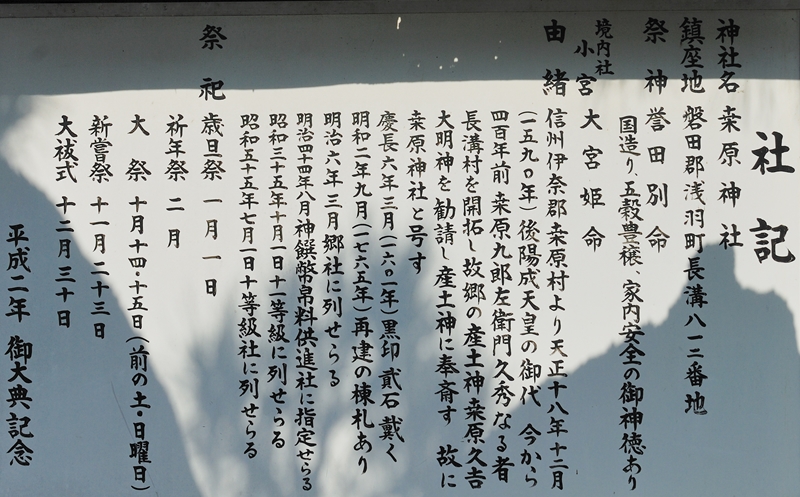 社記
神社名 桒原神社
鎮座地 磐田郡浅羽町長溝八一三番地
祭神 誉田別命
国造り、五穀豊穣、家内安全の御神徳あり
境内社
小宮 大宮姫命
由緒 信州伊奈郡桒原村より天正十八年十二月
(一五九〇年)後陽成天皇の御代 今から
四百年前 桒原九郎左衛門久秀なる者
長溝村を開拓し故郷の産土神桒原久吉
大明神を勧請し産土神に奉斎す 故に
桒原神社と号す
慶長六年三月(一六〇一年)黒印 貳石 戴く
明和二年九月(一七六五年)再建の棟札あり
明治六年三月郷社に列せらる
明治四十四年八月神饌幣帛料供進社に指定せらる
昭和三十五年十月一日十一等級に列せらる
昭和五十五年七月一日十等級社に列せらる
祭祀 歳旦祭 一月一日
祈年祭 二月
大祭 十月十四・十五日(前の土・日曜日)
新嘗祭 十一月二十三日
大祓式 十二月三十日
平成二年 御大典記念